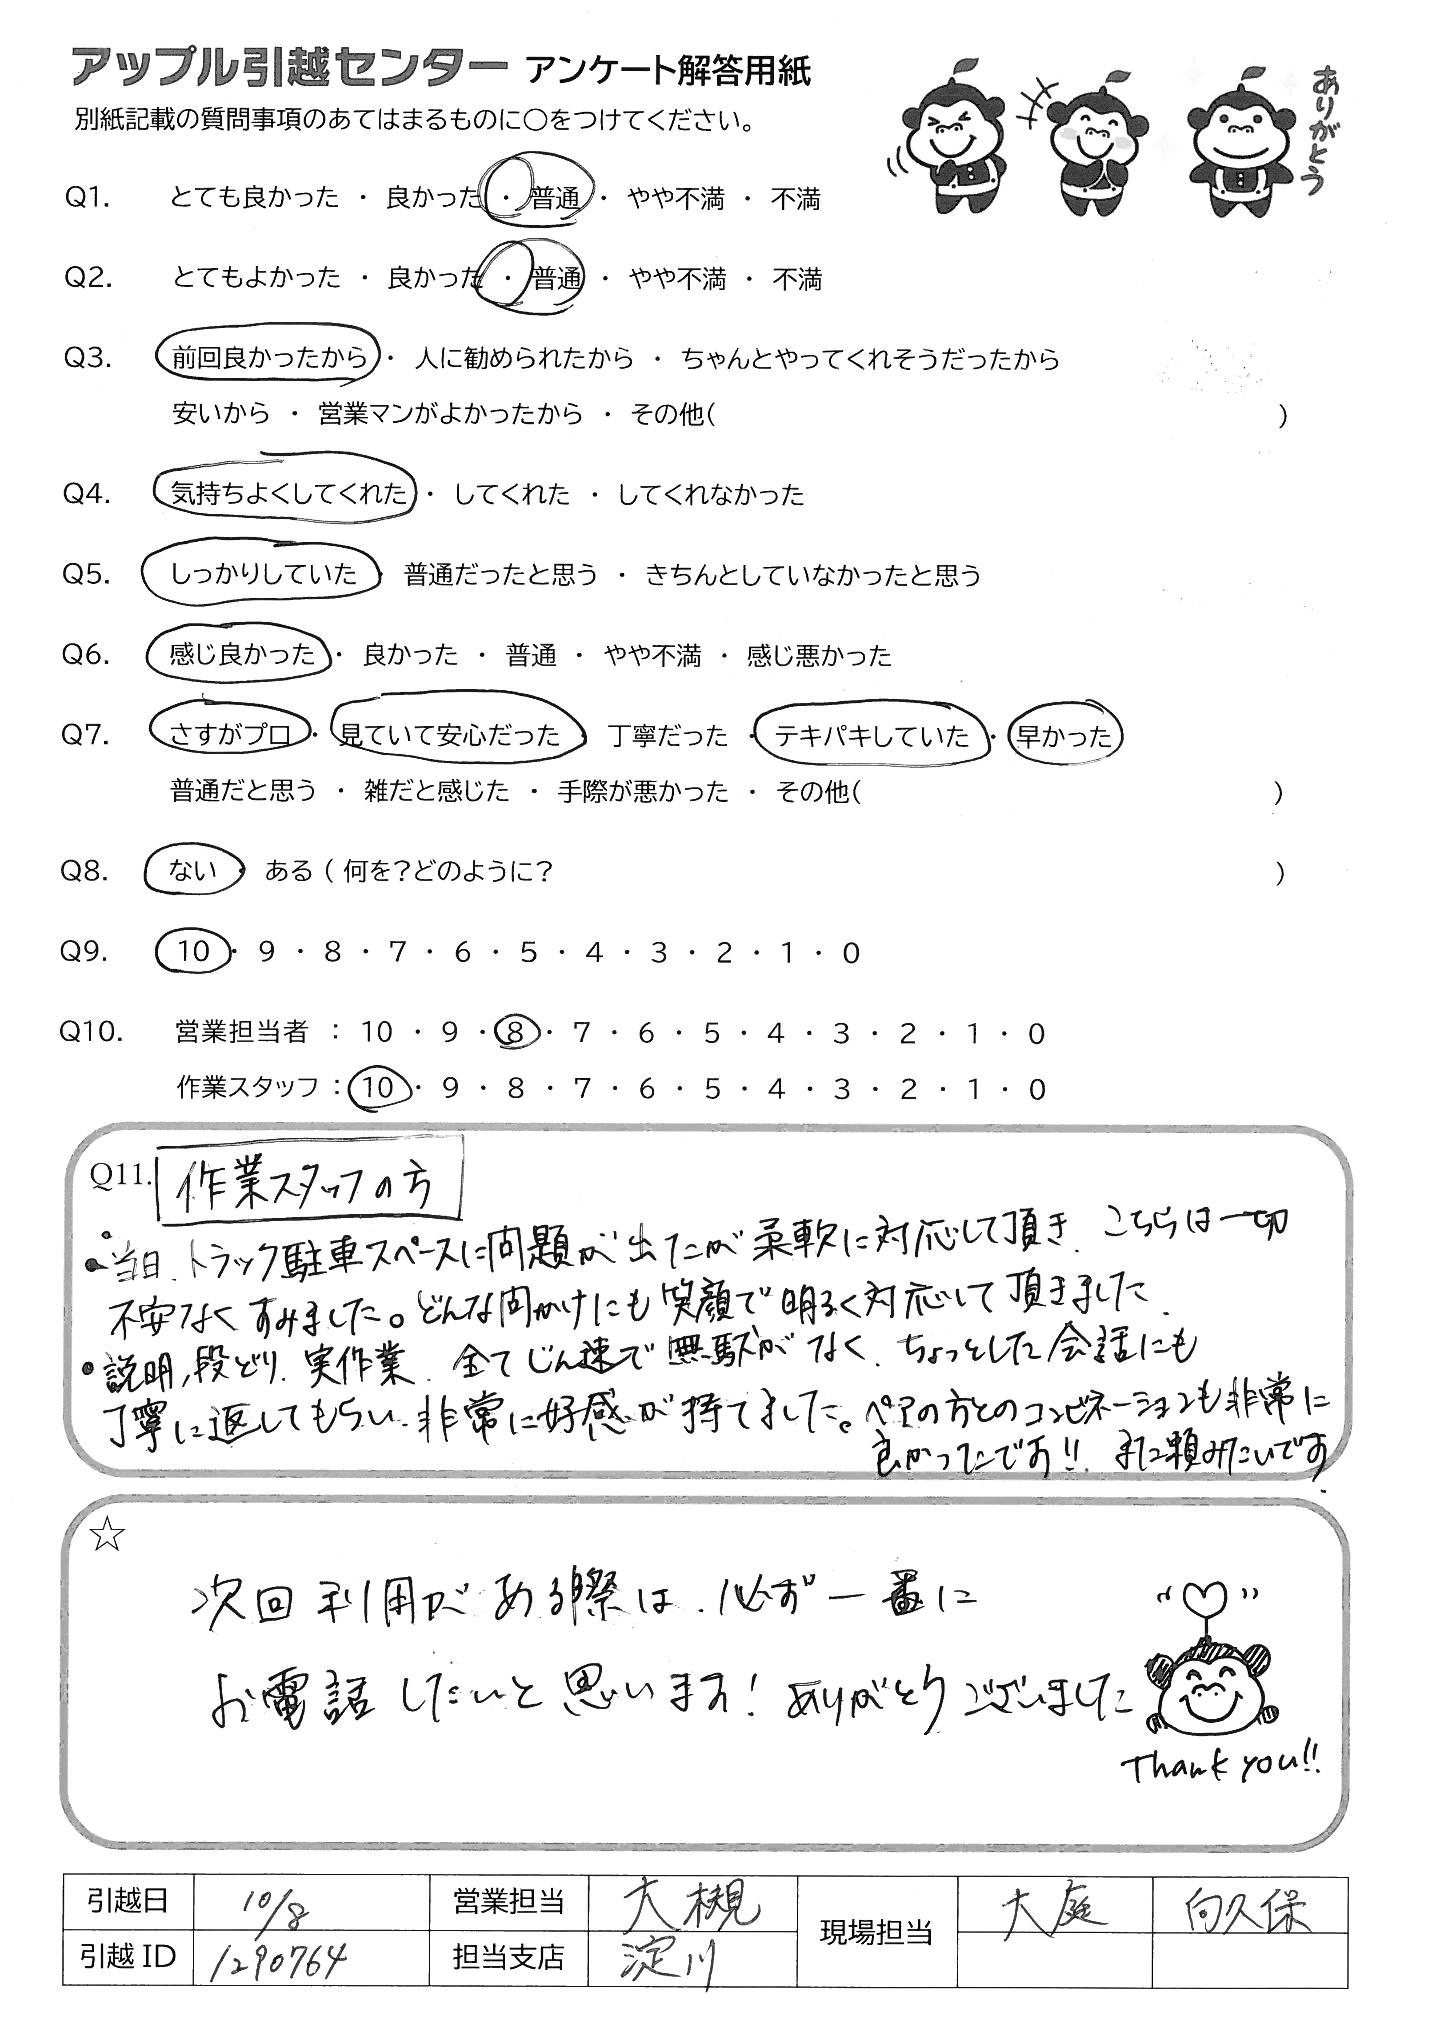 アップル引越センター アンケート解答用紙
別紙記載の質問事項のあてはまるものに○をつけてください。
ありがとう
Q1. とても良かった ・ 良かった ・ 普通 ・ やや不満 ・ 不満
Q2. とてもよかった ・ 良かった ・ 普通 ・ やや不満 ・ 不満
Q3. 前回良かったから ・ 人に勧められたから ・ ちゃんとやってくれそうだったから
安いから ・ 営業マンがよかったから ・ その他( )
Q4. 気持ちよくしてくれた ・ してくれた ・ してくれなかった
Q5. しっかりしていた ・ 普通だったと思う ・ きちんとしていなかったと思う
Q6. 感じ良かった ・ 良かった ・ 普通 ・ やや不満 ・ 感じ悪かった
Q7. さすがプロ ・ 見ていて安心だった ・ 丁寧だった ・ テキパキしていた ・ 早かった
普通だと思う ・ 雑だと感じた ・ 手際が悪かった ・ その他( )
Q8. ない ・ ある ( 何を?どのように? )
Q9. 10 ・ 9 ・ 8 ・ 7 ・ 6 ・ 5 ・ 4 ・ 3 ・ 2 ・ 1 ・ 0
Q10. 営業担当者 : 10 ・ 9 ・ 8 ・ 7 ・ 6 ・ 5 ・ 4 ・ 3 ・ 2 ・ 1 ・ 0
作業スタッフ : 10 ・ 9 ・ 8 ・ 7 ・ 6 ・ 5 ・ 4 ・ 3 ・ 2 ・ 1 ・ 0
Q11. 作業スタッフの方
・当日、トラック駐車スペースに問題が出たが柔軟に対応して頂き、こちらは一切
不安なくすみました。どんな問かけにも笑顔で明るく対応して頂きました、
・説明、段どり、実作業、全てじん速で無駄がなく、ちょっとした会話にも
丁寧に返してもらい、非常に好感が持てました。ペアの方とのコンビネーションも非常に
良かったです!! また頼みたいです、
☆
次回利用がある際は、必ず一番に
お電話したいと思います! ありがとうございました
Thank you!!
引越日 10/8 営業担当 大槻 現場担当 大庭 向久保
引越ID 1290764 担当支店 淀川